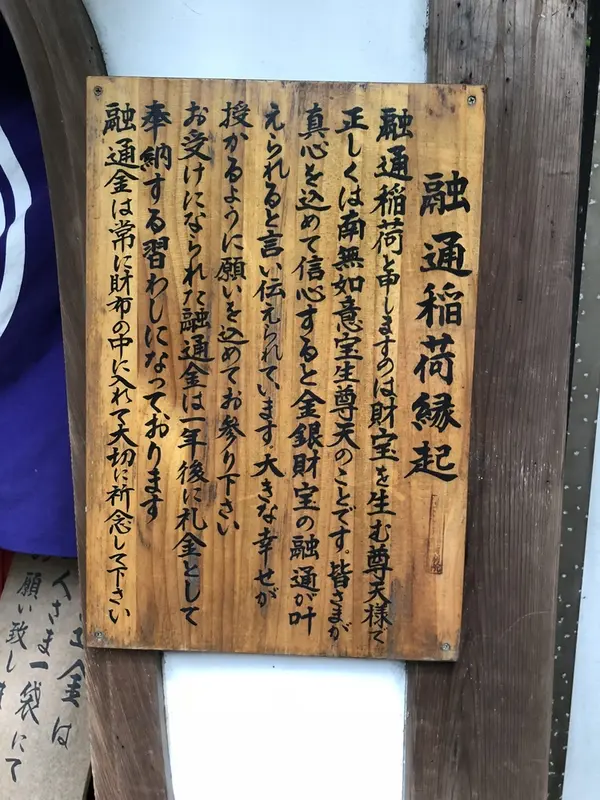 融通稲荷縁起
融通稲荷と申しますのは財宝を生む尊天様で
正しくは南無如意宝生尊天のことです。皆さまが
真心を込めて信心すると金銀財宝の融通が叶
えられると言い伝えられています。大きな幸せが
授かるように願いを込めてお参り下さい
お受けになられた融通金は一年後に礼金として
奉納する習わしになっております
融通金は常に財布の中に入れて大切に祈念して下さい
金は
人さま一袋にて
願い致し